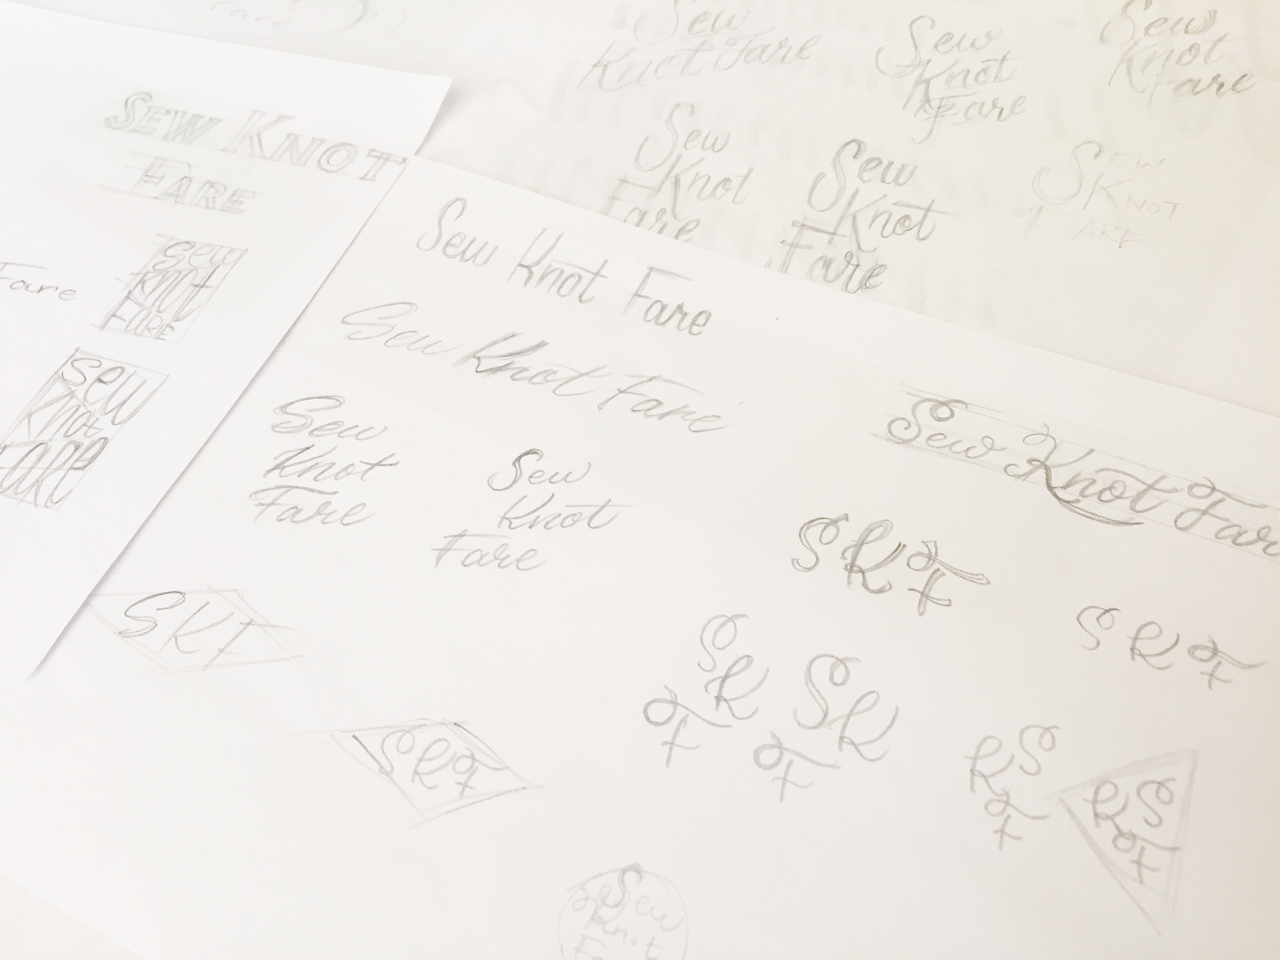 Sew
Knot Fare
Sew
Knot
Fare
Sew
Knot
Fare
Sew
Knot
Fare
Sew
Knot
Fare
SEW
KNOT
FARE
SEW KNOT
FARE
Fare
sew
knot
FARE
sew
Knot
FARE
Sew Knot Fare
Sew Knot Fare
Sew
Knot
Fare
Sew
Knot
Fare
Sew Knot Far
SKF
SKF
SKF
SKF
S
K
F
SK
F
S
K
F
S
K
F
Sew
Knot